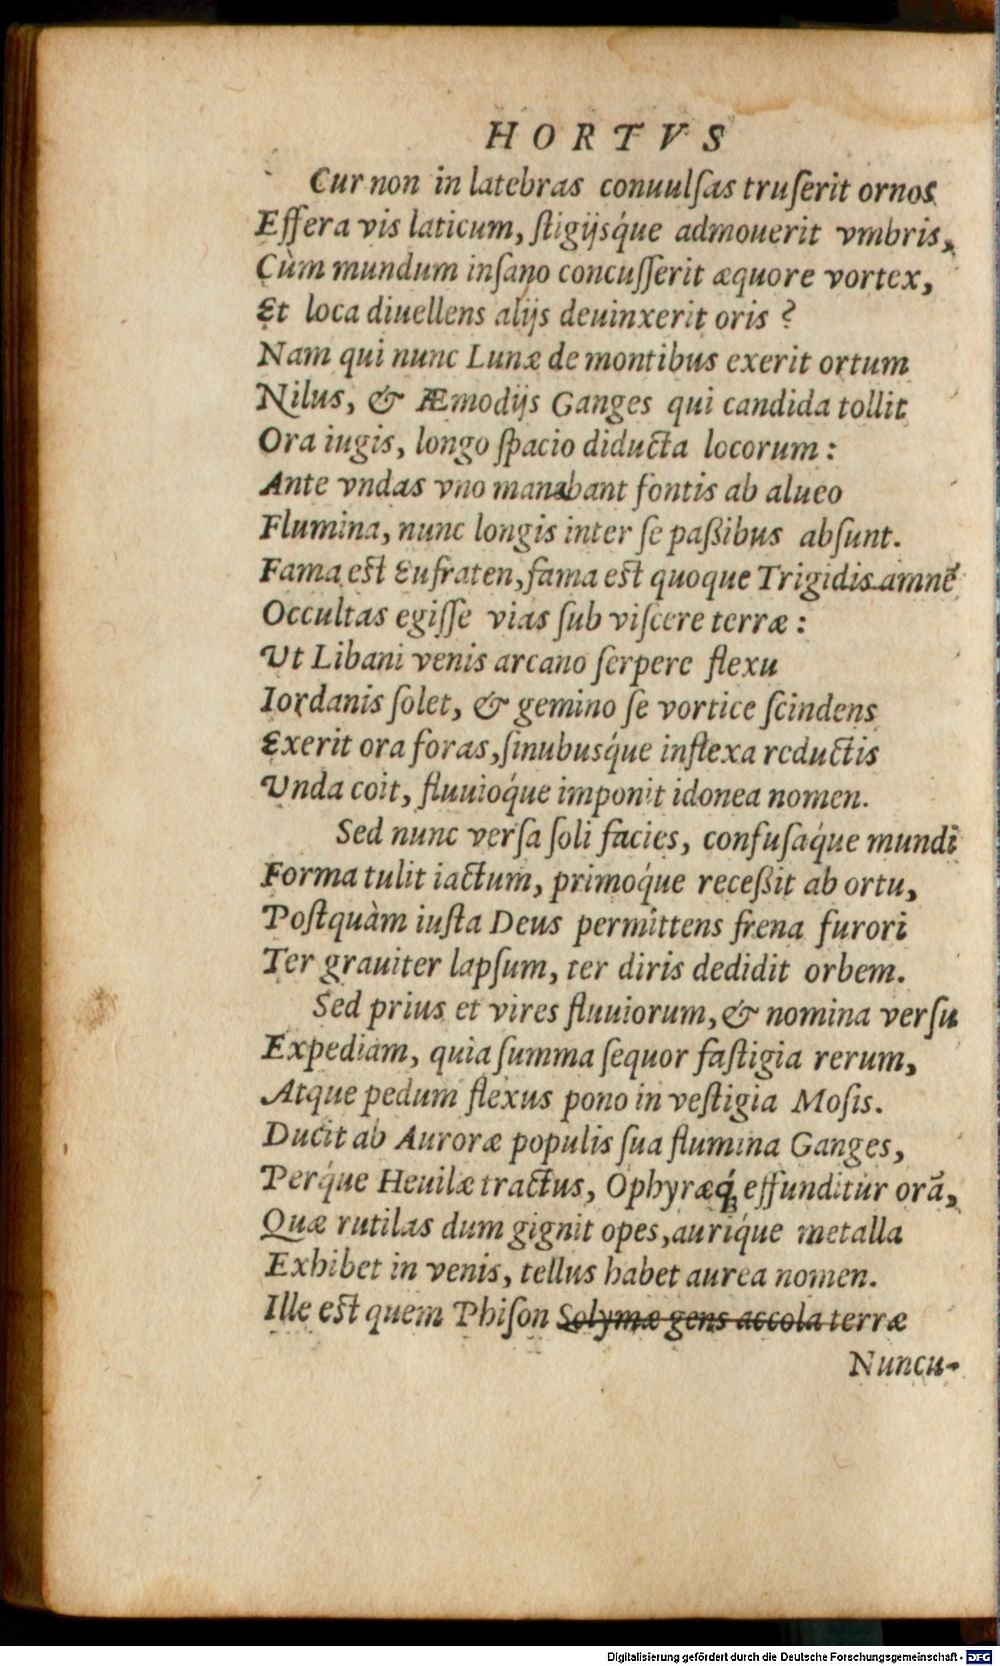 HORTVS
Cur non in latebras conuulſas truſerit ornos
Effera vis laticum, ſtigijsq́ue admouerit vmbris,
Cùm mundum inſano concuſſerit æquore vortex,
Et loca diuellens alijs deuinxerit oris ?
Nam qui nunc Lunæ de montibus exerit ortum
Nilus, & Æmodijs Ganges qui candida tollit
Ora iugis, longo ſpacio diducta locorum :
Ante vndas vno manabant fontis ab alueo
Flumina, nunc longis inter ſe paßibus abſunt.
Fama eſt Eufraten, fama eſt quoque Trigidis amnē
Occultas egiſſe vias ſub viſcere terræ :
Vt Libani venis arcano ſerpere flexu
Iordanis ſolet, & gemino ſe vortice ſcindens
Exerit ora foras, ſinubusq́ue inflexa reductis
Vnda coit, fluuioq́ue imponit idonea nomen.
Sed nunc verſa ſoli facies, confuſaq́ue mundi
Forma tulit iactum, primoq́ue receßit ab ortu,
Poſtquàm iuſta Deus permittens frena furori
Ter grauiter lapſum, ter diris dedidit orbem.
Sed prius et vires fluuiorum, & nomina verſu
Expediam, quia ſumma ſequor faſtigia rerum,
Atque pedum flexus pono in veſtigia Moſis.
Ducit ab Auroræ populis ſua flumina Ganges,
Perq́ue Heuilæ tractus, Ophyræq́; effunditur orā,
Quæ rutilas dum gignit opes, auriq́ue metalla
Exhibet in venis, tellus habet aurea nomen.
Ille eſt quem Phiſon Solymæ gens accola terræ
Nuncu-
Digitalisierung gefördert durch die Deutsche Forschungsgemeinschaft - DFG